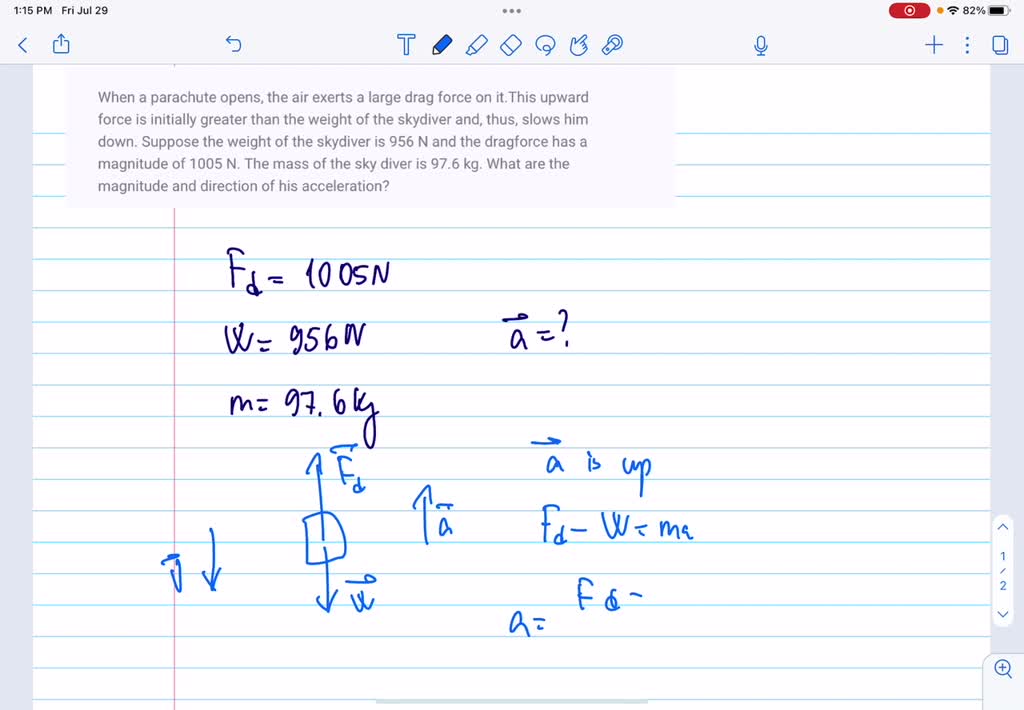 1:15 PM Fri Jul 29
82%
When a parachute opens, the air exerts a large drag force on it.This upward
force is initially greater than the weight of the skydiver and, thus, slows him
down. Suppose the weight of the skydiver is 956 N and the dragforce has a
magnitude of 1005 N. The mass of the sky diver is 97.6 kg. What are the
magnitude and direction of his acceleration?
Fd = 1005N
W = 956N
a = ?
m = 97.6 kg
Fd
a is up
a
Fd - W = ma
v
W
Fd -
a =
1
/
2